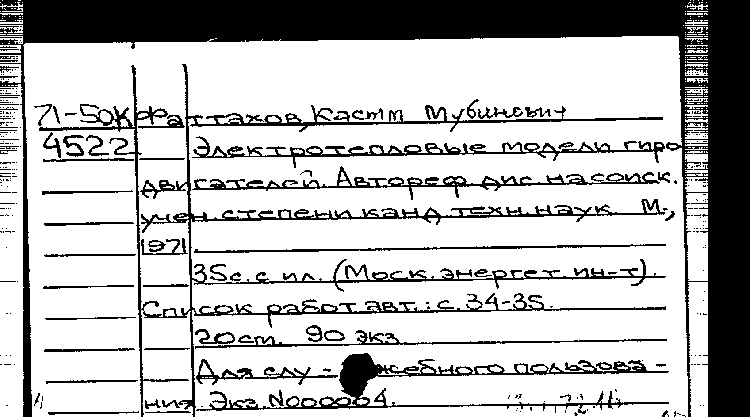 71-50К Фаттахов, Кастм Мубинович
4522 Электротепловые модели гиро
двигателей. Автореф. дис. на соиск.
учен. степени канд. техн. наук М.,
1971.
35с. с ил. (Моск. энергет. ин-т).
Список работ авт.: с. 34-35.
20см. 90 экз.
Для слу-жебного пользова-
ния Экз. N000004.